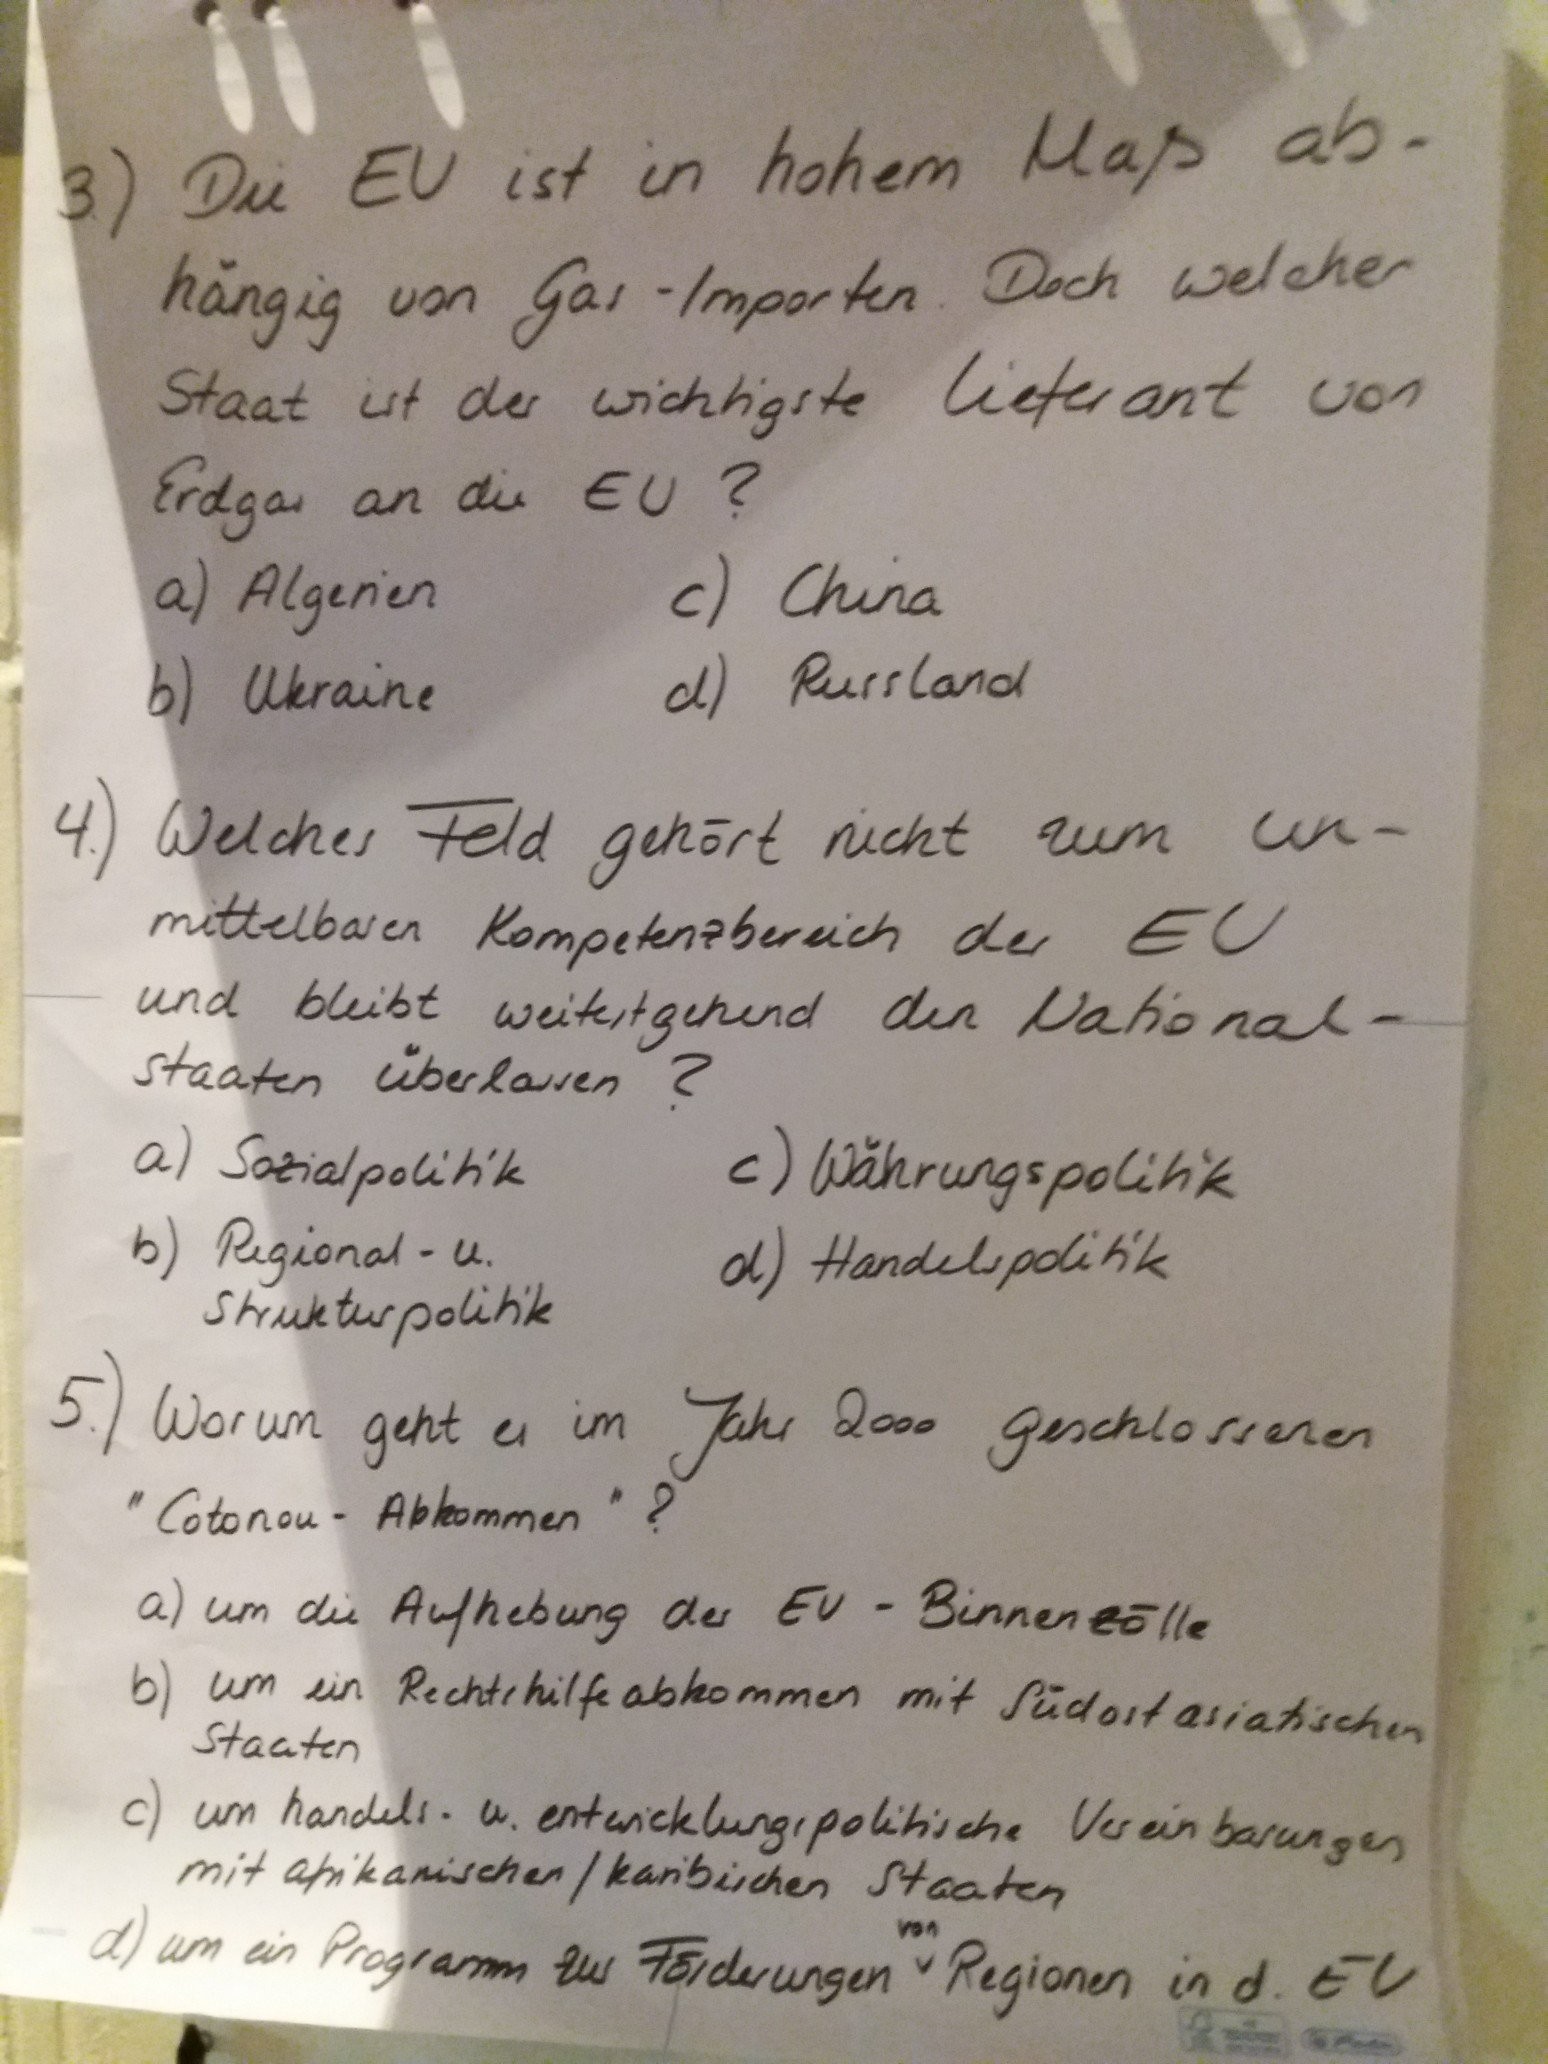 3.) Die EU ist in hohem Maß ab-
hängig von Gas-Importen. Doch welcher
Staat ist der wichtigste Lieferant von
Erdgas an die EU?
a) Algerien c) China
b) Ukraine d) Russland
4.) Welches Feld gehört nicht zum un-
mittelbaren Kompetenzbereich der EU
und bleibt weitestgehend den National-
staaten überlassen?
a) Sozialpolitik c) Währungspolitik
b) Regional- u. d) Handelspolitik
Strukturpolitik
5.) Worum geht es im Jahr 2000 geschlossenen
"Cotonou-Abkommen"?
a) um die Aufhebung der EU-Binnenzölle
b) um ein Rechtshilfeabkommen mit Südostasiatischen
Staaten
c) um handels- u. entwicklungspolitische Vereinbarungen
mit afrikanischen/karibischen Staaten
d) um ein Programm zur Förderungen von Regionen in d. EU